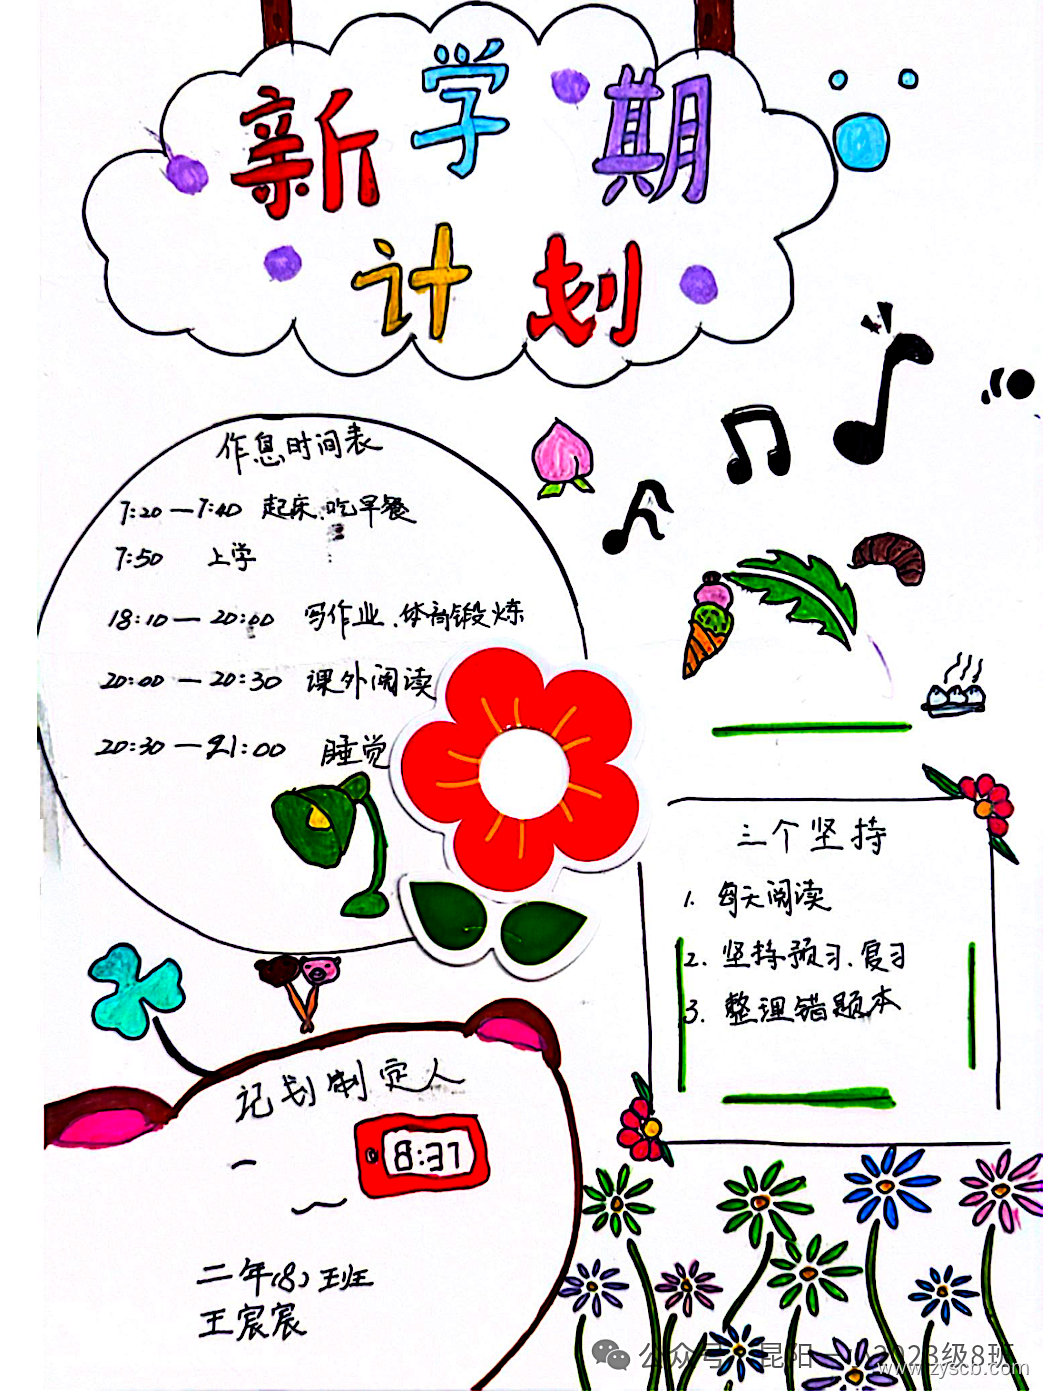 新学期
计划
作息时间表
7:20—7:40 起床、吃早餐
7:50 上学
18:10—20:00 写作业、体育锻炼
20:00—20:30 课外阅读
20:30—21:00 睡觉
三个坚持
1. 每天阅读
2. 坚持预习、复习
3. 整理错题本
记划制定人
8:37
二年(8)班
王宸宸
公众号 昆阳一小2023级8班
www.zyscb.com